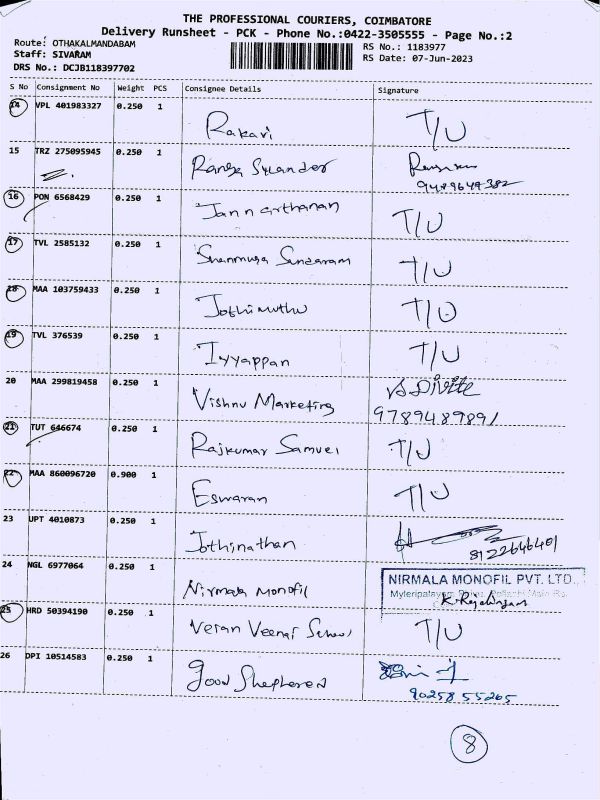 THE PROFESSIONAL COURIERS, COIMBATORE
Delivery Runsheet - PCK - Phone No.:0422-3505555 - Page No.:2
Route: OTHAKALMANDABAM
RS No.: 1183977
Staff: SIVARAM
RS Date: 07-Jun-2023
DRS No.: DCJB118397702
S No Consignment No Weight PCS Consignee Details Signature
14 VPL 401983327 0.250 1 Rakavi T/U
15 TRZ 275095945 0.250 1
9489649382
16 PON 6568429 0.250 1 Jann arthanan T/U
17 TVL 2585132 0.250 1 Shanmuga Sundaram T/U
18 MAA 103759433 0.250 1 Jothimuthu T/U
19 TVL 376539 0.250 1 Iyyappan T/U
20 MAA 299819458 0.250 1 Vishnu Marketing
9789489891
21 TUT 646674 0.250 1 Rajkumar Samuel T/U
22 MAA 860096720 0.900 1 Eswaran T/U
23 UPT 4010873 0.250 1 Jothinathan
8122646401
24 NGL 6977064 0.250 1 Nirmala Monofil
NIRMALA MONOFIL PVT. LTD.,
25 HRD 50394190 0.250 1 Veran Veenai School T/U
26 DPI 10514583 0.250 1 Good Shepherd
90258 55265
8